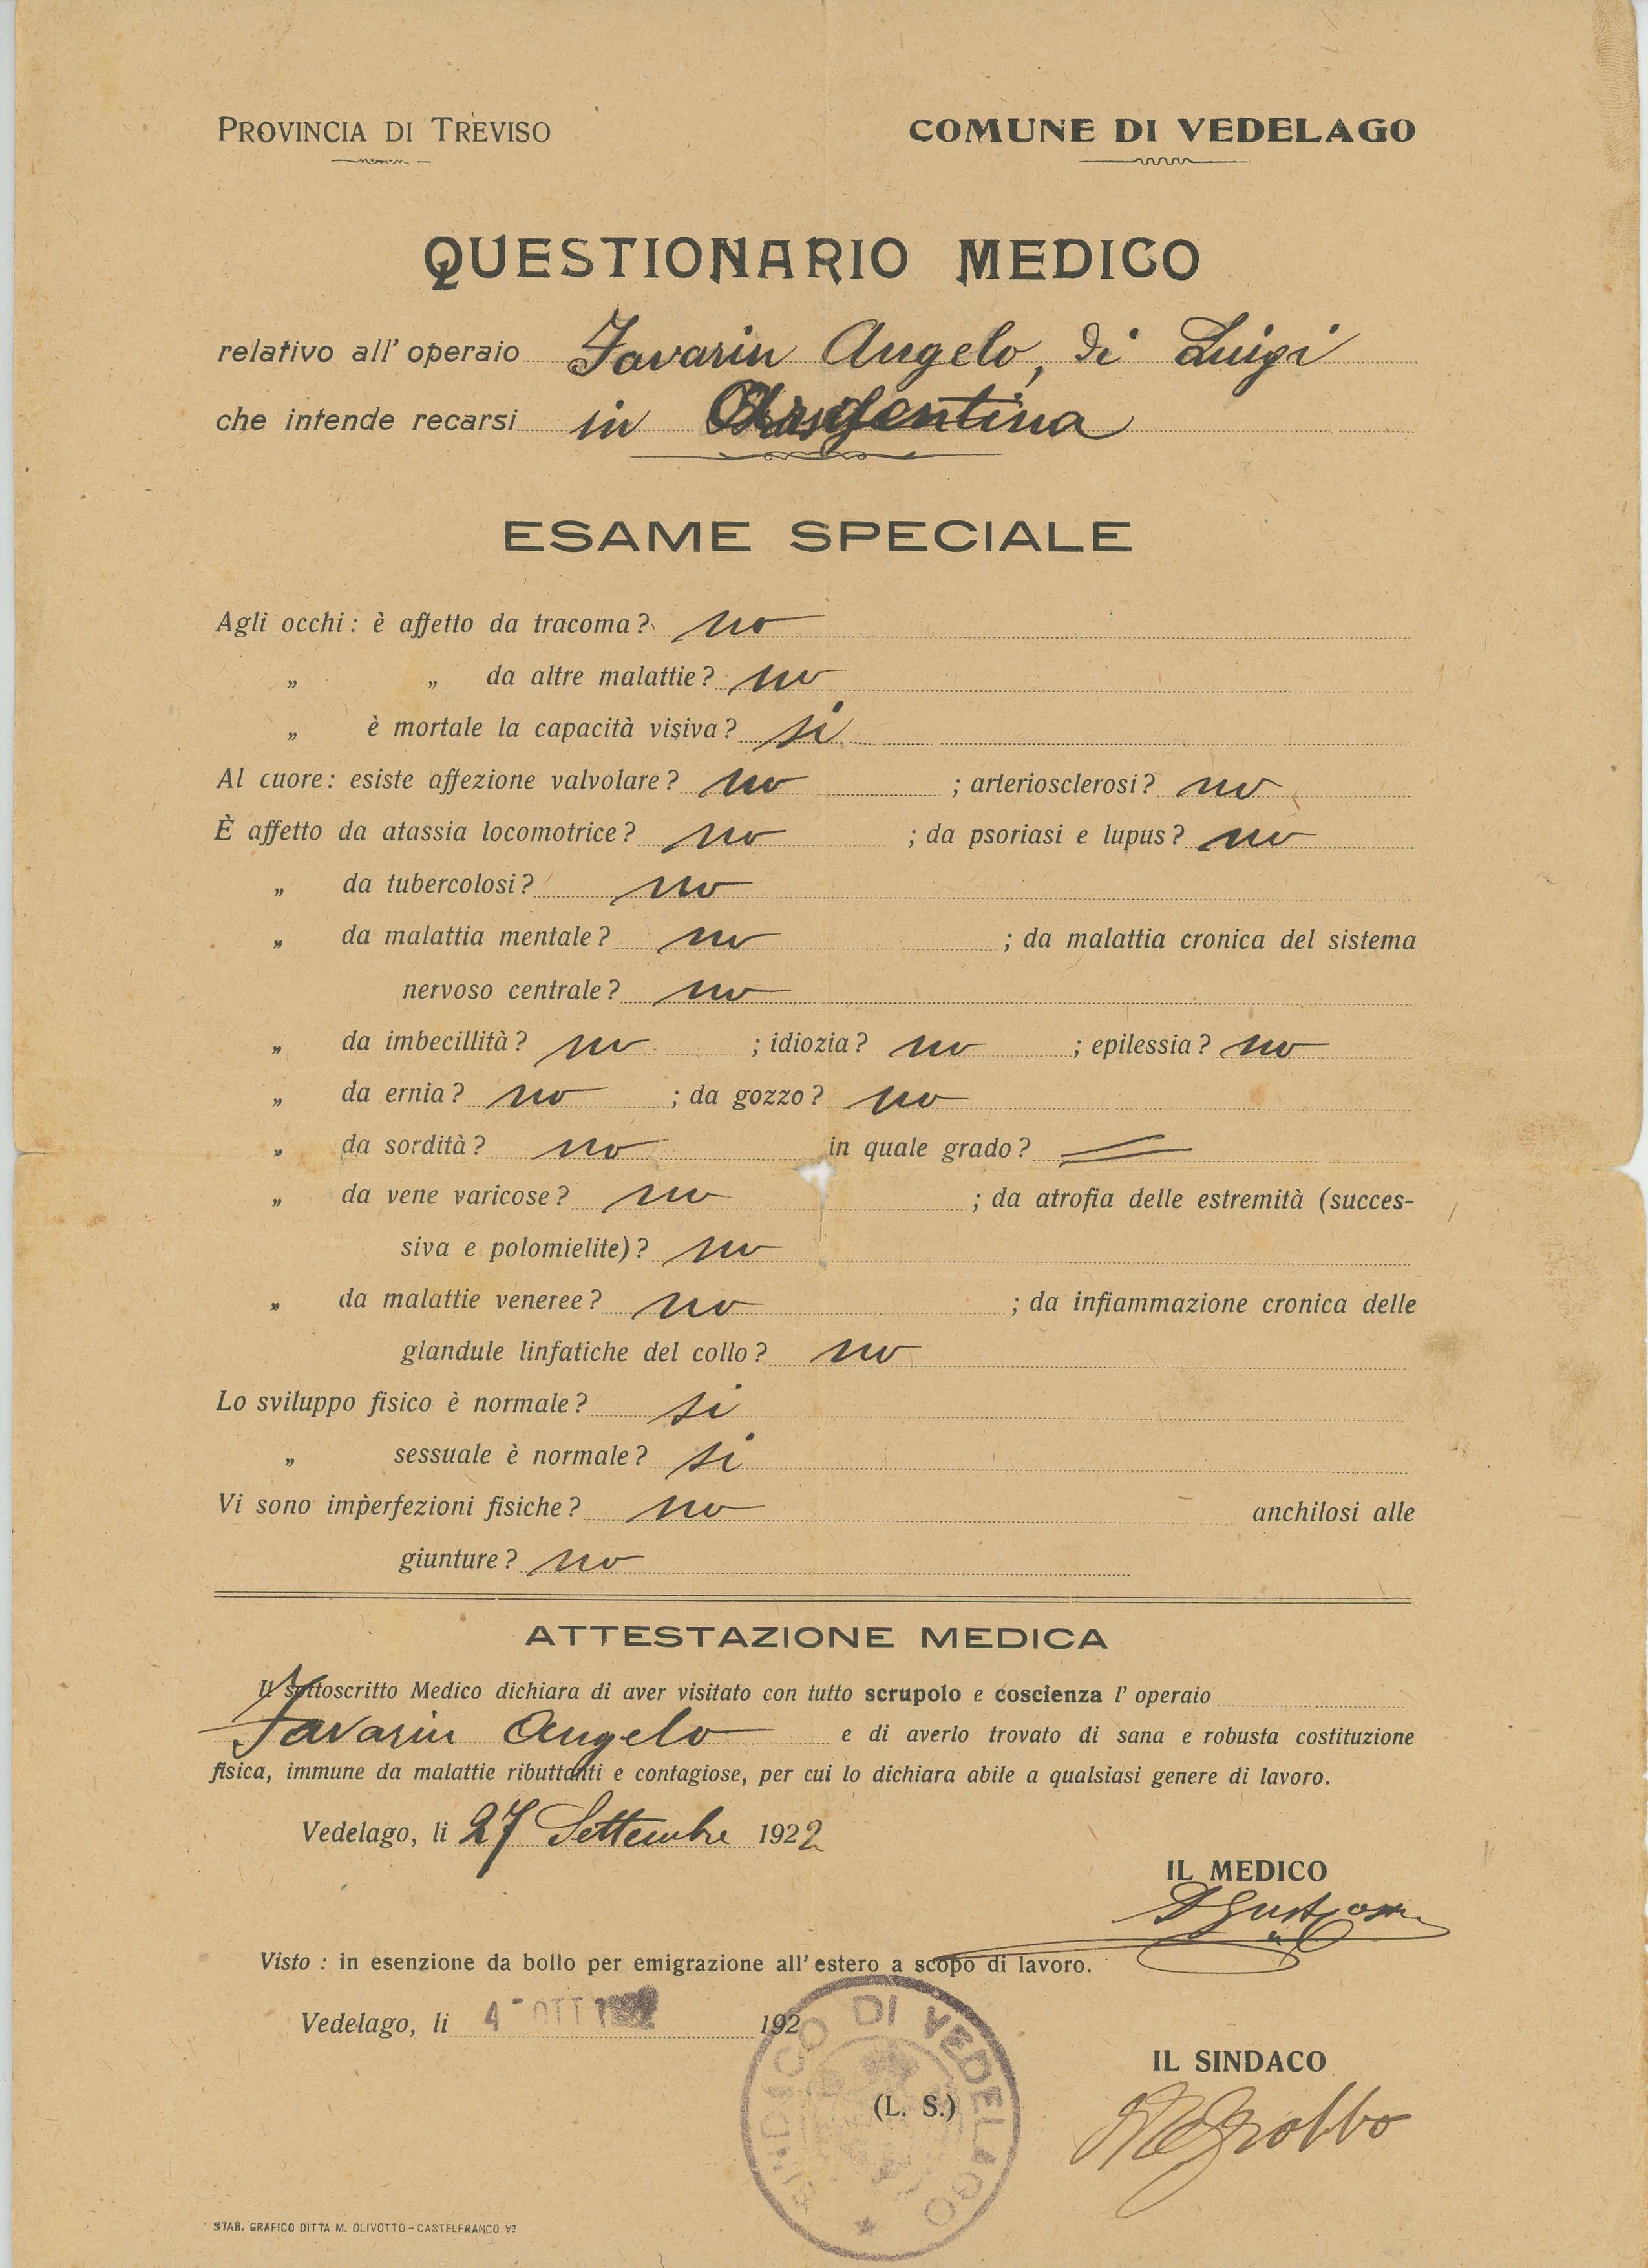 PROVINCIA DI TREVISO
COMUNE DI VEDELAGO
QUESTIONARIO MEDICO
relativo all' operaio Favarin Angelo, di Luigi
che intende recarsi in Argentina
ESAME SPECIALE
Agli occhi : è affetto da tracoma ? no
„ „ da altre malattie ? no
„ è mortale la capacità visiva ? si
Al cuore : esiste affezione valvolare ? no ; arteriosclerosi ? no
È affetto da atassia locomotrice ? no ; da psoriasi e lupus ? no
„ da tubercolosi ? no
„ da malattia mentale ? no ; da malattia cronica del sistema
nervoso centrale ? no
„ da imbecillità ? no ; idiozia ? no ; epilessia ? no
„ da ernia ? no ; da gozzo ? no
„ da sordità ? no in quale grado ?
„ da vene varicose ? no ; da atrofia delle estremità (succes-
siva e polomielite) ? no
„ da malattie veneree ? no ; da infiammazione cronica delle
glandule linfatiche del collo ? no
Lo sviluppo fisico è normale ? si
„ sessuale è normale ? si
Vi sono imperfezioni fisiche ? no anchilosi alle
giunture ? no
ATTESTAZIONE MEDICA
Il sottoscritto Medico dichiara di aver visitato con tutto scrupolo e coscienza l' operaio
Favarin Angelo e di averlo trovato di sana e robusta costituzione
fisica, immune da malattie ributtanti e contagiose, per cui lo dichiara abile a qualsiasi genere di lavoro.
Vedelago, li 27 Settembre 1922
IL MEDICO
Visto : in esenzione da bollo per emigrazione all' estero a scopo di lavoro.
Vedelago, li 4 - OTT 1922 192
SINDACO DI VEDELAGO
(L. S.)
IL SINDACO
STAB. GRAFICO DITTA M. OLIVOTTO - CASTELFRANCO Vº